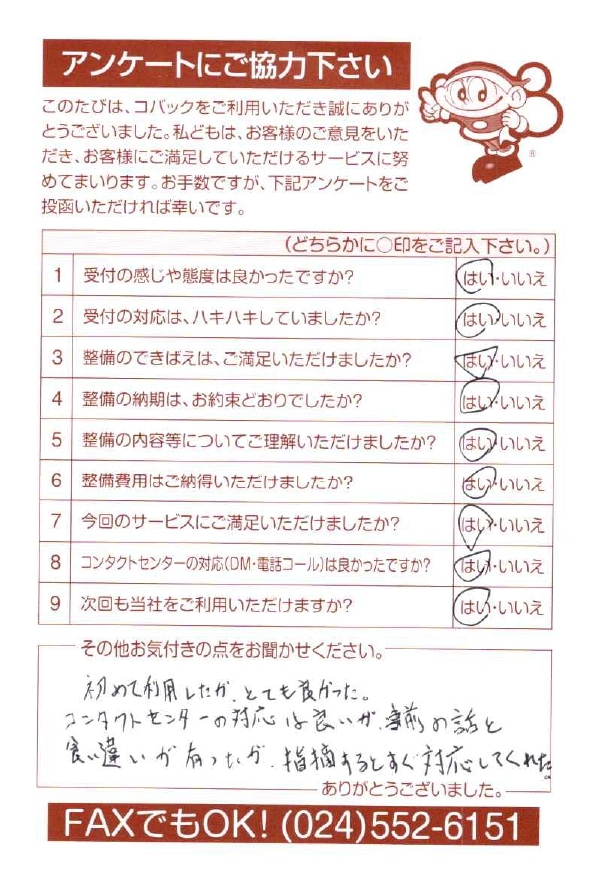 アンケートにご協力下さい
このたびは、コバックをご利用いただき誠にありが
とうございました。私どもは、お客様のご意見をいた
だき、お客様にご満足していただけるサービスに努
めてまいります。お手数ですが、下記アンケートをご
投函いただければ幸いです。
®
(どちらかに○印をご記入下さい。)
1 受付の感じや態度は良かったですか? はい・いいえ
2 受付の対応は、ハキハキしていましたか? はい・いいえ
3 整備のできばえは、ご満足いただけましたか? はい・いいえ
4 整備の納期は、お約束どおりでしたか? はい・いいえ
5 整備の内容等についてご理解いただけましたか? はい・いいえ
6 整備費用はご納得いただけましたか? はい・いいえ
7 今回のサービスにご満足いただけましたか? はい・いいえ
8 コンタクトセンターの対応(DM・電話コール)は良かったですか? はい・いいえ
9 次回も当社をご利用いただけますか? はい・いいえ
その他お気付きの点をお聞かせください。
初めて利用したが、とても良かった。
コンタクトセンターの対応は良いが、事前の話と
食い違いが有ったが、指摘するとすぐ対応してくれた。
ありがとうございました。
FAXでもOK! (024)552-6151